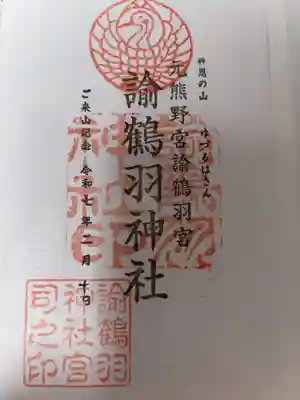 神恩の山
ゆづるはさん
元熊野宮諭鶴羽宮
諭鶴羽神社
ご来山記念 令和七年二月 日
諭鶴羽
神社宮
司之印